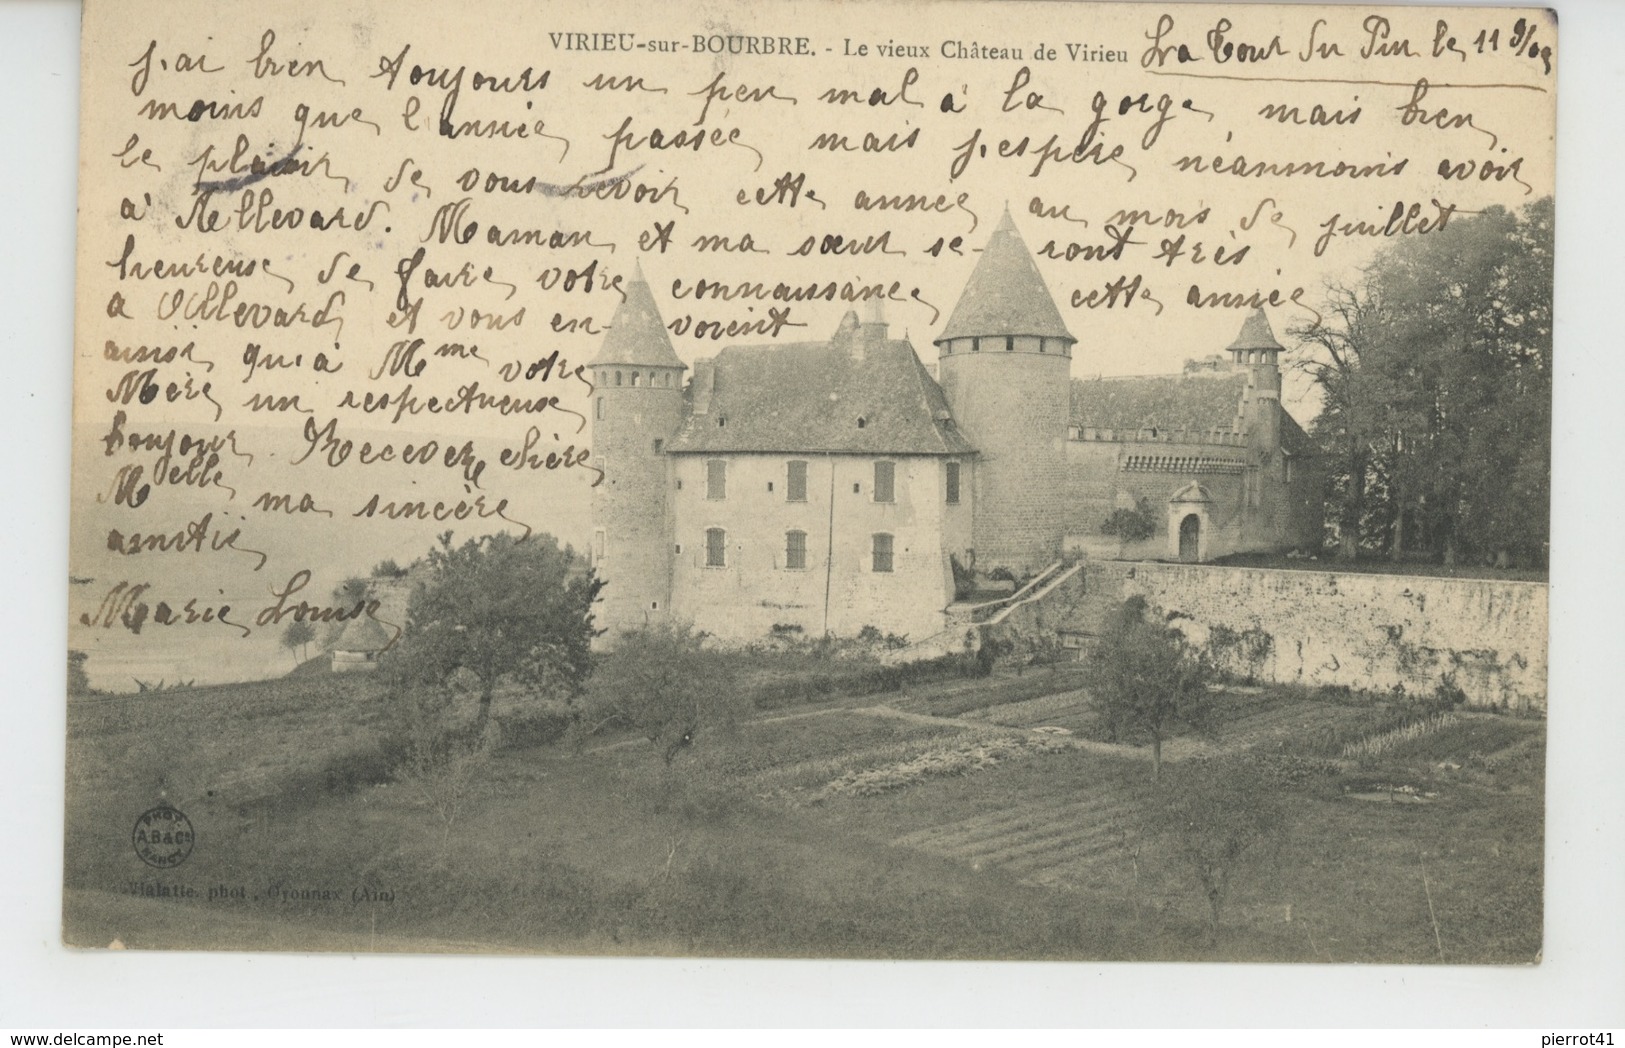 VIRIEU-sur-BOURBRE. - Le vieux Château de Virieu
La Tour du Pin le 11
J'ai bien toujours un peu mal à la gorge, mais bien
moins que l'année passée, mais j'espère néanmoins avoir
le plaisir de vous revoir cette année au mois de juillet
à Allevard. Maman et ma sœur se- ront très
heureuse de faire votre connaissance cette année
à Allevard et vous en- voient
ainsi qu'à Mme votre
Mère un respectueuse
bonjour. Recever chère
Melle ma sincère
amitié
Marie Louise
PHOT
A.B & Co
NANCY
Vialatte, phot., Oyonnax (Ain)
pierrot41